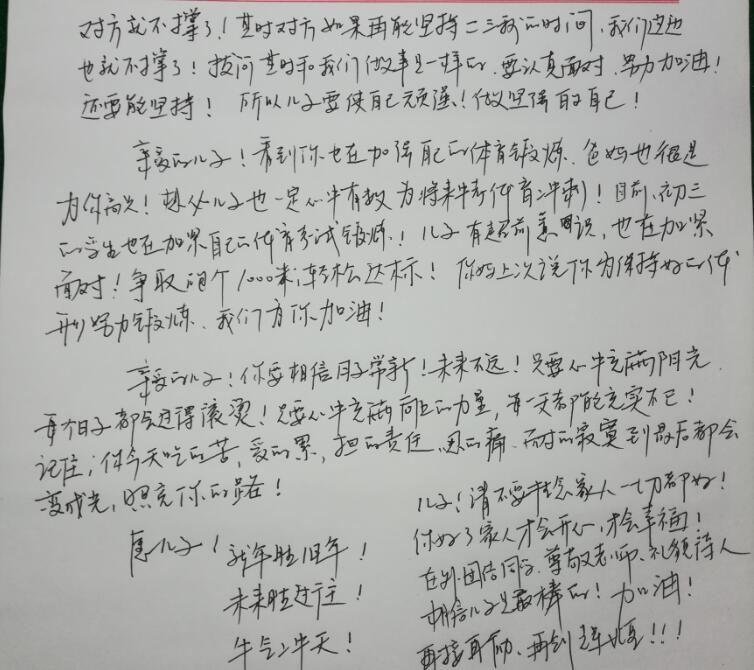 对方就不撑了！其时对方如果再能坚持二三秒的时间，我们这边
也就不撑了！拔河其时和我们做事是一样的，要认真面对，努力加油！
还要能坚持！所以儿子要使自己顽强！做坚强的自己！
亲爱的儿子！看到你也在加强自己的体育锻炼，爸妈也很是
为你高兴！想必儿子也一定心中有数为将来中考体育冲刺！目前，初三
的学生也在加紧自己的体育考试锻炼！儿子有超前意识，也在加紧
面对！争取的个1000米，轻松达标！你妈上次说你为保持好的体
形努力锻炼，我们为你加油！
亲爱的儿子！你要相信日子常新！未来不远！只要心中充满阳光
每个日子都会过得滚烫！只要心中充满向上的力量，每一天都能充实不已！
记住；你今天吃的苦，受的累，担的责任，忍的痛，耐的寂寞到最后都会
变成光，照亮你的路！
愿儿子！
新年胜旧年！
未来胜过往！
牛气冲天！
儿子！请不要牵念家人一切都好！
你好了家人才会开心，才会幸福！
在外团结同学，尊敬老师，礼貌待人
相信儿子是最棒的！加油！
再接再励、再创辉煌！！！